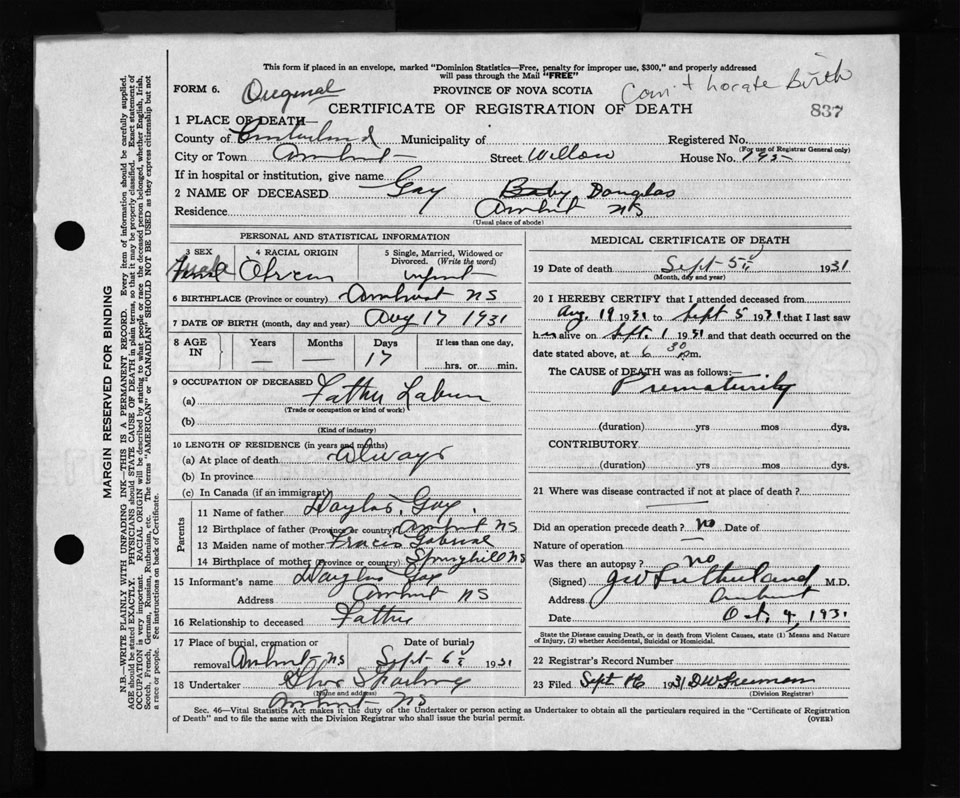 This form if placed in an envelope, marked "Dominion Statistics—Free, penalty for improper use, $300," and properly addressed
will pass through the Mail "FREE"
FORM 6. Original PROVINCE OF NOVA SCOTIA
CERTIFICATE OF REGISTRATION OF DEATH 837
Birth
1 PLACE OF DEATH—
County of Cumberland Municipality of Registered No.
(For use of Registrar General only)
City or Town Amherst Street Willow House No.
If in hospital or institution, give name
2 NAME OF DECEASED Gay Baby Douglas
Residence Amherst NS
(Usual place of abode)
PERSONAL AND STATISTICAL INFORMATION
3 SEX 4 RACIAL ORIGIN 5 Single, Married, Widowed or
Divorced. (Write the word)
infant
6 BIRTHPLACE (Province or country) Amherst NS
7 DATE OF BIRTH (month, day and year) Aug 17 1931
8 AGE IN Years Months Days If less than one day,
— — 17 hrs. or min.
9 OCCUPATION OF DECEASED
(a) Father Laborer
(Trade or occupation or kind of work)
(b)
(Kind of industry)
10 LENGTH OF RESIDENCE (in years and months)
(a) At place of death Always
(b) In province
(c) In Canada (if an immigrant)
Parents
11 Name of father Douglas Gay
12 Birthplace of father (Province or country) Amherst NS
13 Maiden name of mother
14 Birthplace of mother (Province or country) Springhill NS
15 Informant's name Douglas Gay
Address Amherst NS
16 Relationship to deceased Father
17 Place of burial, cremation or Date of burial
removal Amherst NS Sept 6 1931
18 Undertaker
(Name and address)
Amherst NS
MEDICAL CERTIFICATE OF DEATH
19 Date of death Sept 5 1931
(Month, day and year)
20 I HEREBY CERTIFY that I attended deceased from
Aug. 19 1931 to Sept 5 1931 that I last saw
h alive on Sept. 1 1931 and that death occurred on the
date stated above, at 6 30 p.m.
The CAUSE of DEATH was as follows:—
Prematurity
(duration) yrs mos dys.
CONTRIBUTORY
(duration) yrs mos dys.
21 Where was disease contracted if not at place of death?
—
Did an operation precede death? no Date of
Nature of operation —
Was there an autopsy? no
(Signed) J W Sutherland M.D.
Address Amherst
Date Oct. 4, 1931
State the Disease causing Death, or in death from Violent Causes, state (1) Means and Nature
of Injury, (2) whether Accidental, Suicidal or Homicidal.
22 Registrar's Record Number
23 Filed Sept 1931 D W Freeman
(Division Registrar)
Sec. 46—Vital Statistics Act makes it the duty of the Undertaker or person acting as Undertaker to obtain all the particulars required in the "Certificate of Registration
of Death" and to file the same with the Division Registrar who shall issue the burial permit. (OVER)
MARGIN RESERVED FOR BINDING
N.B.—WRITE PLAINLY WITH UNFADING INK—THIS IS A PERMANENT RECORD. Every item of information should be carefully supplied.
AGE should be stated EXACTLY. PHYSICIANS should STATE CAUSE OF DEATH in plain terms, so that it may be properly classified. Exact statement of
OCCUPATION is very important. RACIAL ORIGIN will be described by stating to what people or race the deceased person belonged, whether English, Irish,
Scotch, French, German, Russian, Ruthenian, etc. The terms "AMERICAN" or "CANADIAN" SHOULD NOT BE USED as they express citizenship but not
a race or people. See instructions on back of Certificate.